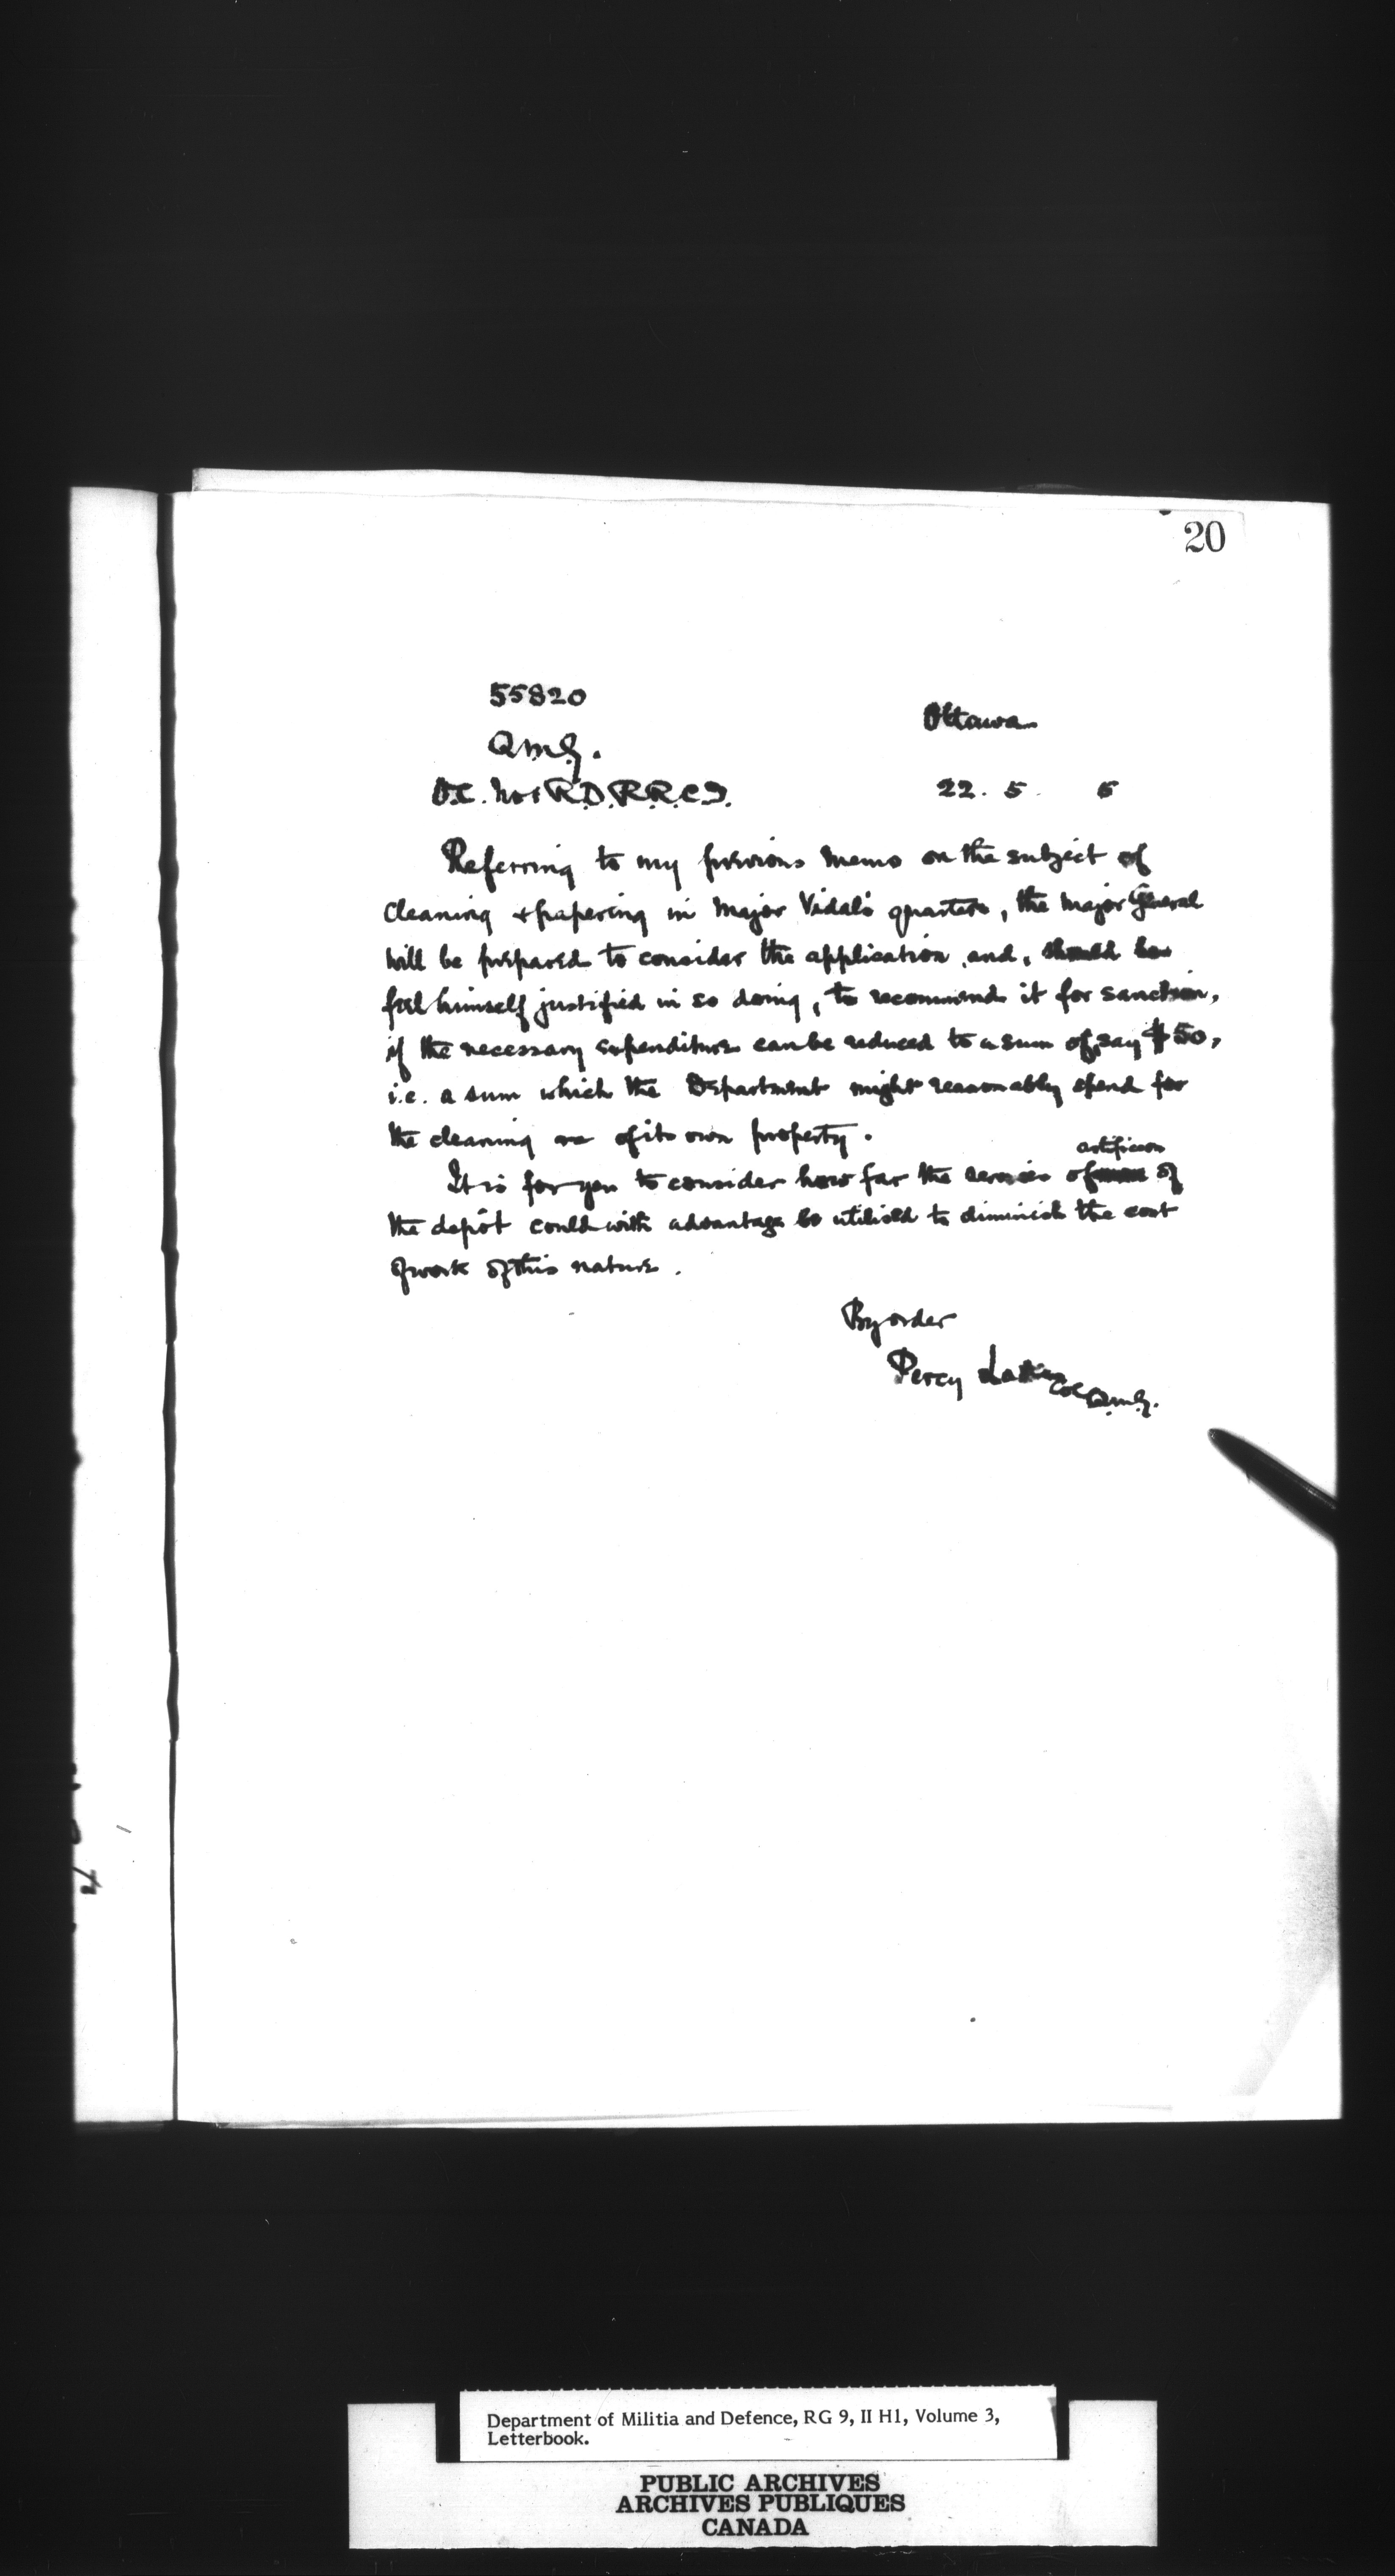 20
55820
Ottawa
Q.M.G.
O.C. No 1 R.D. R.R.C.I.
22. 5. 6
Referring to my previous memo on the subject of
cleaning & papering in Major Vidal's quarters, the Major General
will be prepared to consider the application, and, should he
feel himself justified in so doing, to recommend it for sanction,
if the necessary expenditure can be reduced to a sum of, say $50,
i.e. a sum which the Department might reasonably spend for
the cleaning of its own property.
artificers
It is for you to consider how far the services of of
the depôt could with advantage be utilised to diminish the cost
of work of this nature.
By order
Percy Lake
Col Q.M.G.
Department of Militia and Defence, RG 9, II H1, Volume 3,
Letterbook.
PUBLIC ARCHIVES
ARCHIVES PUBLIQUES
CANADA